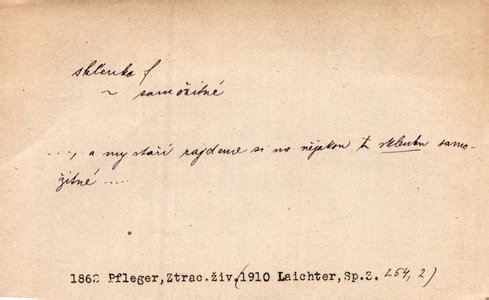 sklenka f
~ samožitné
...., a my staří zajdeme si na nějakou t sklenku samo-
žitné .....
1862 Pfleger,Ztrac.živ.(1910 Laichter,Sp.3. 264, 2)